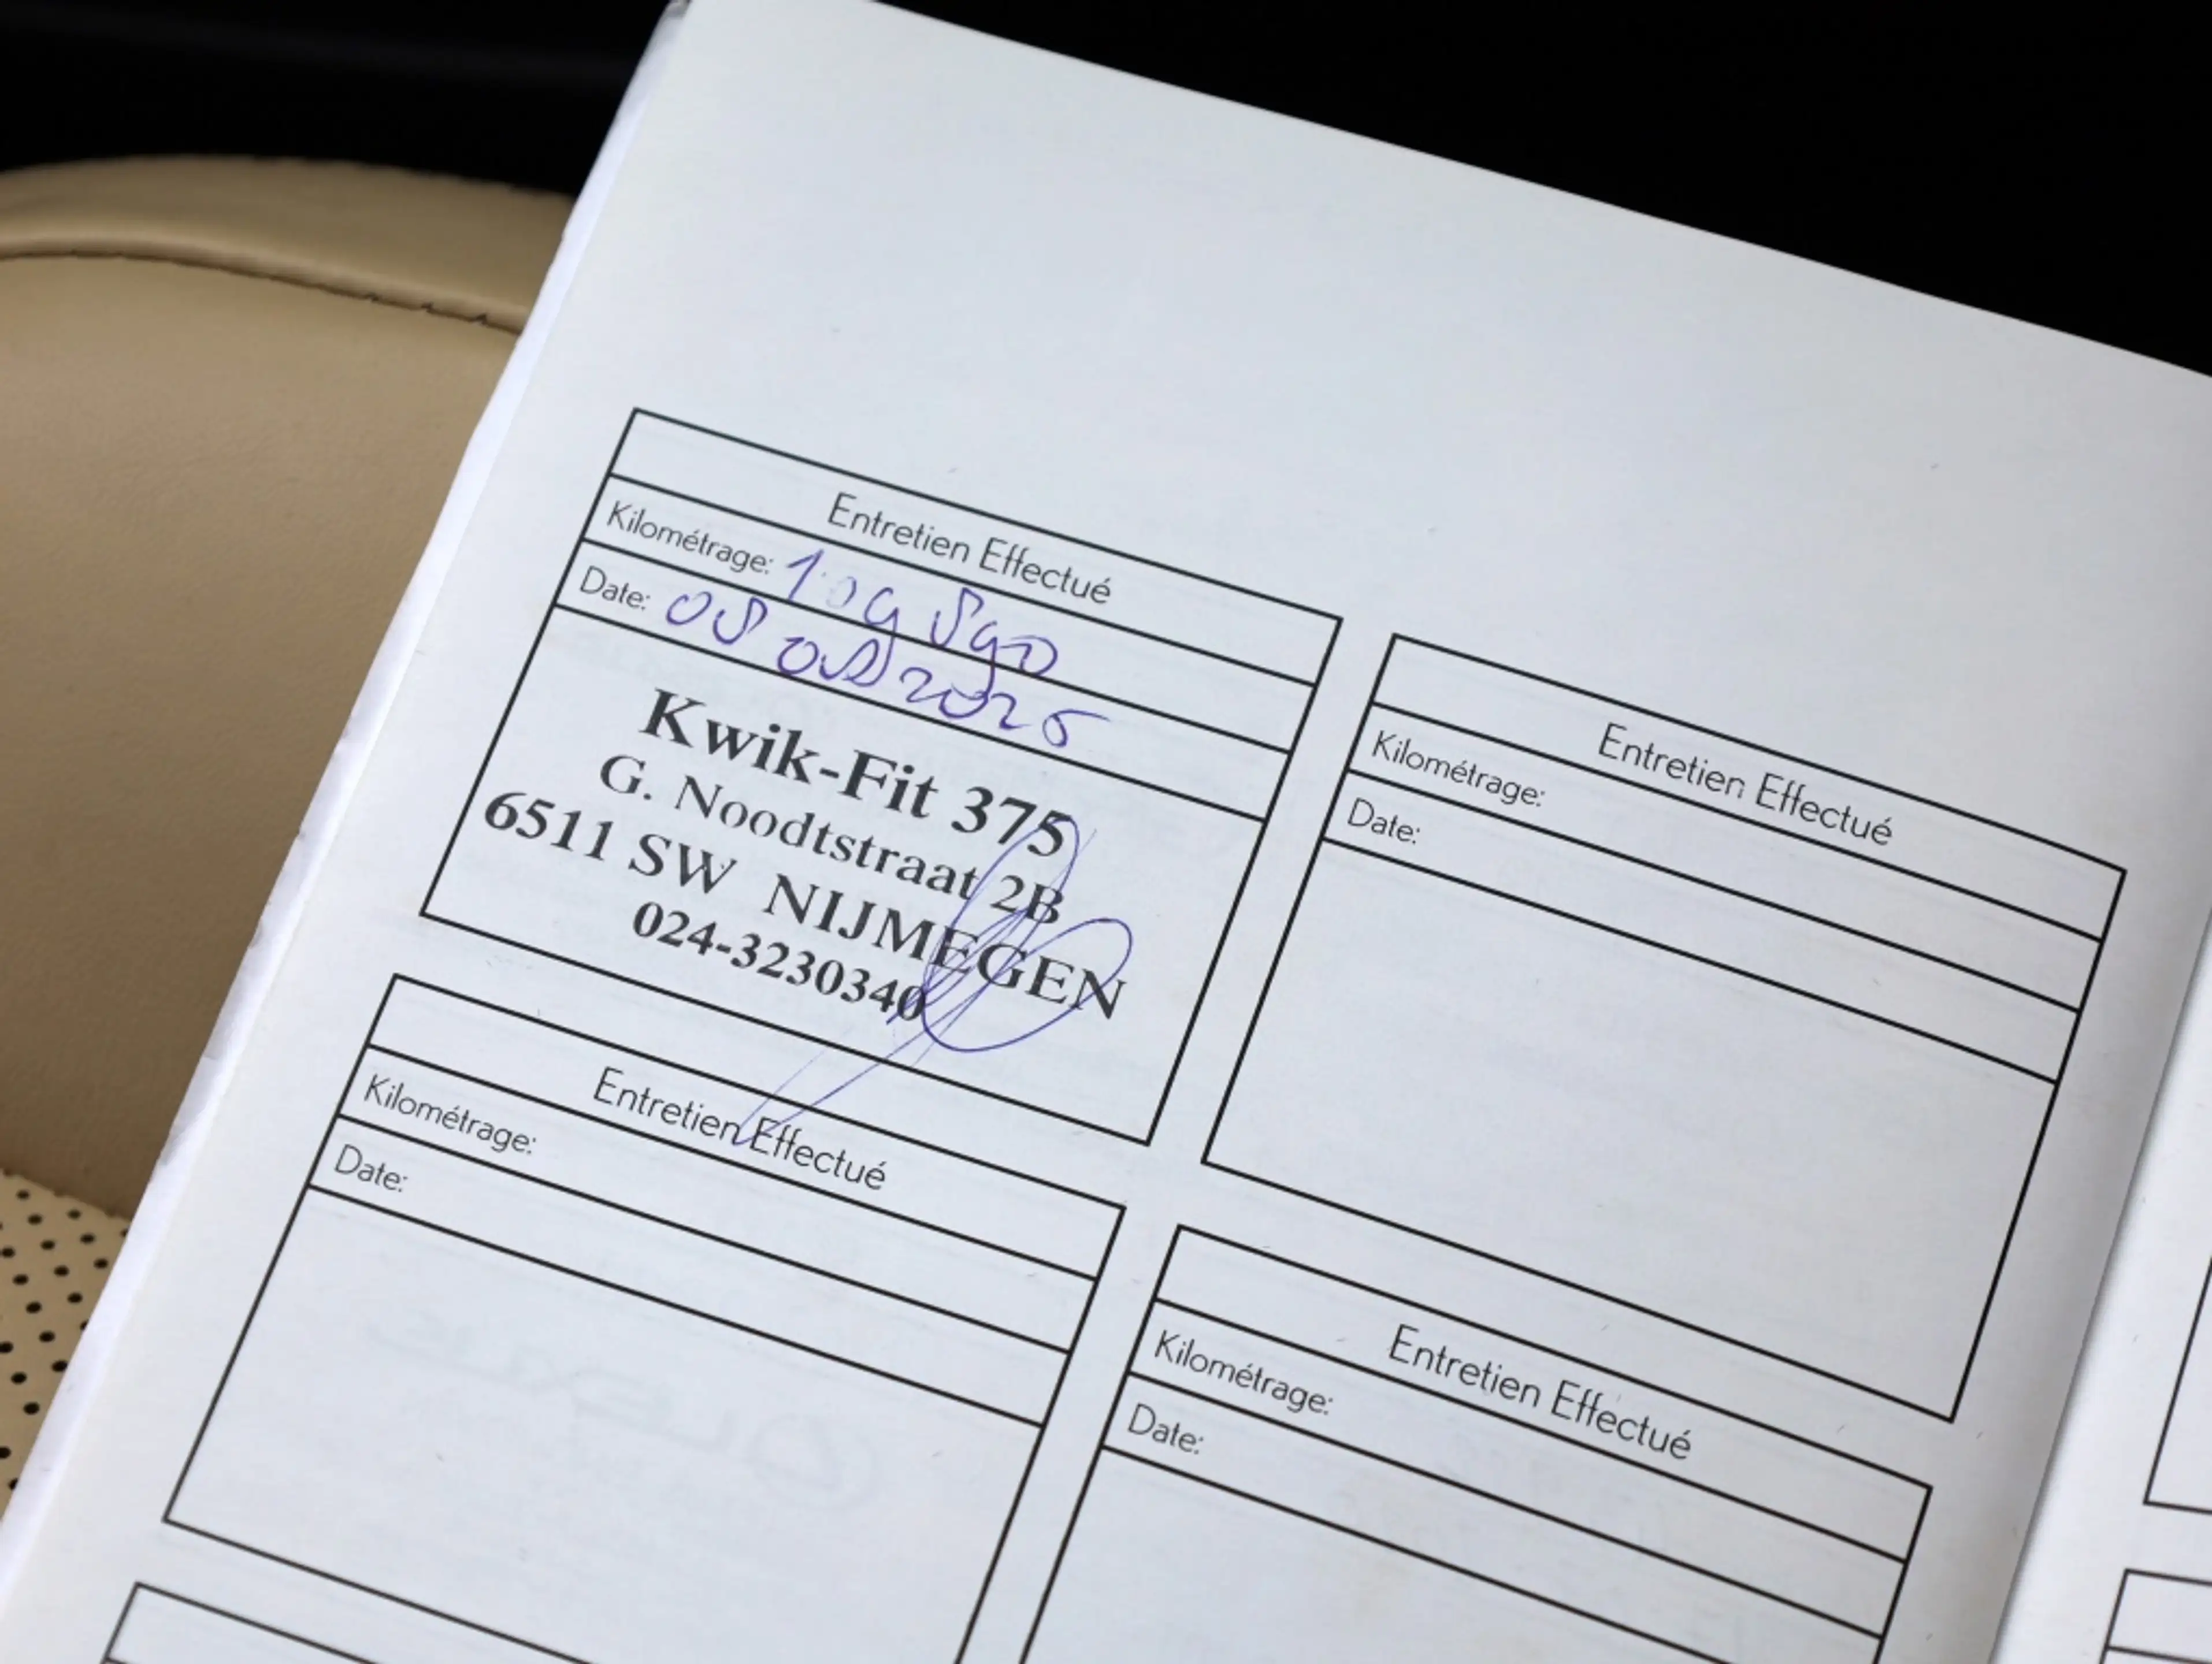 Entretien Effectué
Kilométrage: 109 890
Date: 08 08 2025
Kwik-Fit 375
G. Noodtstraat 2B
6511 SW NIJMEGEN
024-3230340
Entretien Effectué
Kilométrage:
Date:
Entretien Effectué
Kilométrage:
Date:
Entretien Effectué
Kilométrage:
Date: